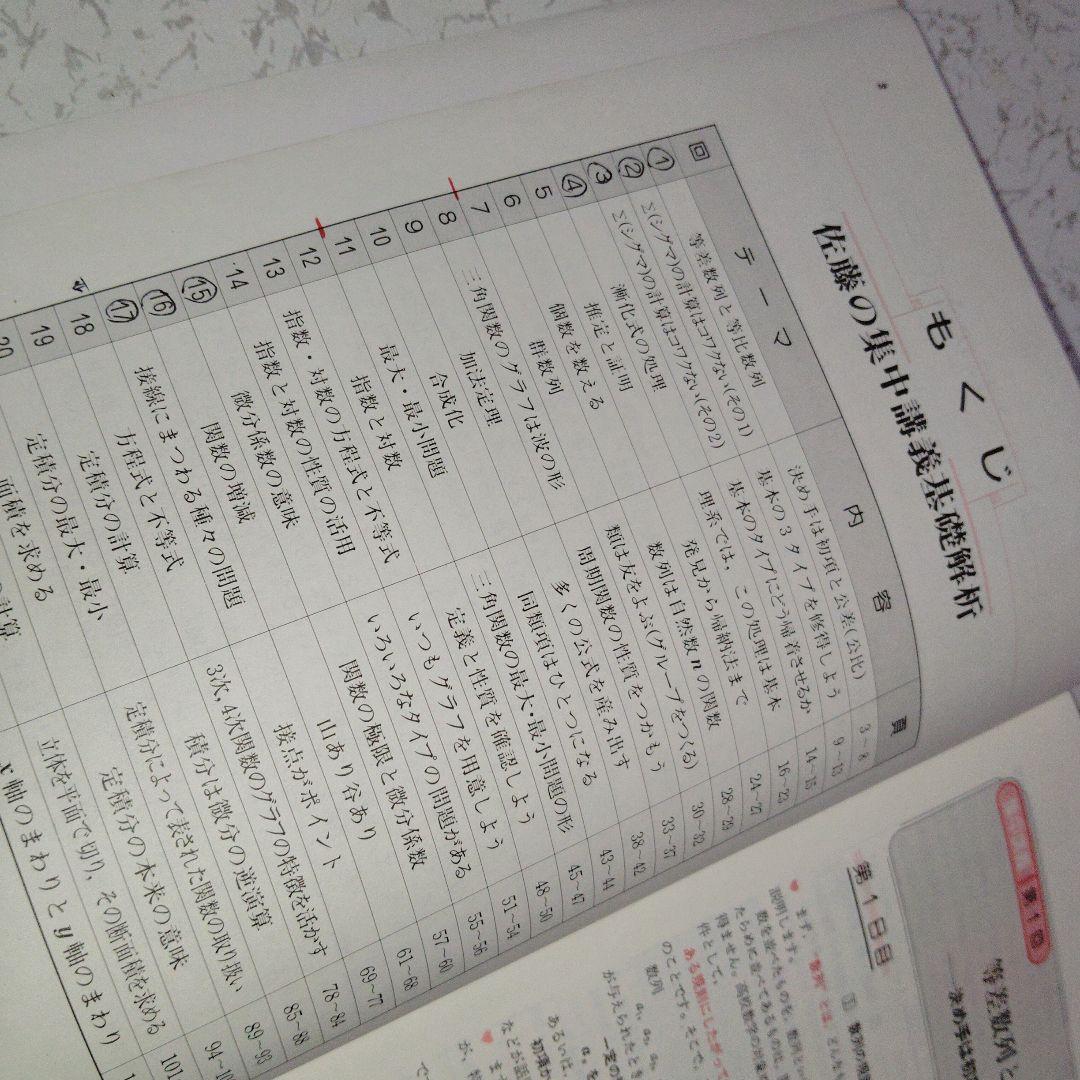 もくじ
佐藤の集中講義基礎解析
回 テーマ 内容 頁
① 等差数列と等比数列 決め手は初項と公差(公比) 3~8
② Σ(シグマ)の計算はコワクない(その1) 基本の3タイプを修得しよう 9~13
③ Σ(シグマ)の計算はコワクない(その2) 基本のタイプにどう帰着させるか 14~15
④ 漸化式の処理 理系では、この処理は基本 16~23
5 推定と証明 発見から帰納法まで 24~27
6 個数を数える 数列は自然数nの関数 28~29
7 群数列 類は友をよぶ(グループをつくる) 30~32
8 三角関数のグラフは波の形 周期関数の性質をつかもう 33~37
9 加法定理 多くの公式を産み出す 38~42
10 合成化 同類項はひとつになる 43~44
11 最大・最小問題 三角関数の最大・最小問題の形 45~47
12 指数と対数 定義と性質を確認しよう 48~50
13 指数・対数の方程式と不等式 いつもグラフを用意しよう 51~54
14 指数と対数の性質の活用 いろいろなタイプの問題がある 55~56
⑮ 微分係数の意味 関数の極限と微分係数 57~60
⑯ 関数の増減 山あり谷あり 61~68
⑰ 接線にまつわる種々の問題 接点がポイント 69~77
18 方程式と不等式 3次,4次関数のグラフの特徴を活かす 78~84
19 定積分の計算 積分は微分の逆演算 85~88
20 定積分の最大・最小 定積分によって表された関数の取り扱い 89~93
面積を求める 定積分の本来の意味 94~10
の計算 立体を平面で切り、その断面積を求める 101
x軸のまわりとy軸のまわり
第1回
等差数列と
決め手は初
第1日目
まず、"数列"とは、
説明します。
数を並べたものを、数列とい
ある規則にしたがって
件として、
のことです。そこで、
数列 a₁, a₂, a₃
が与えられたとき
あるいは、
初項か
などが話